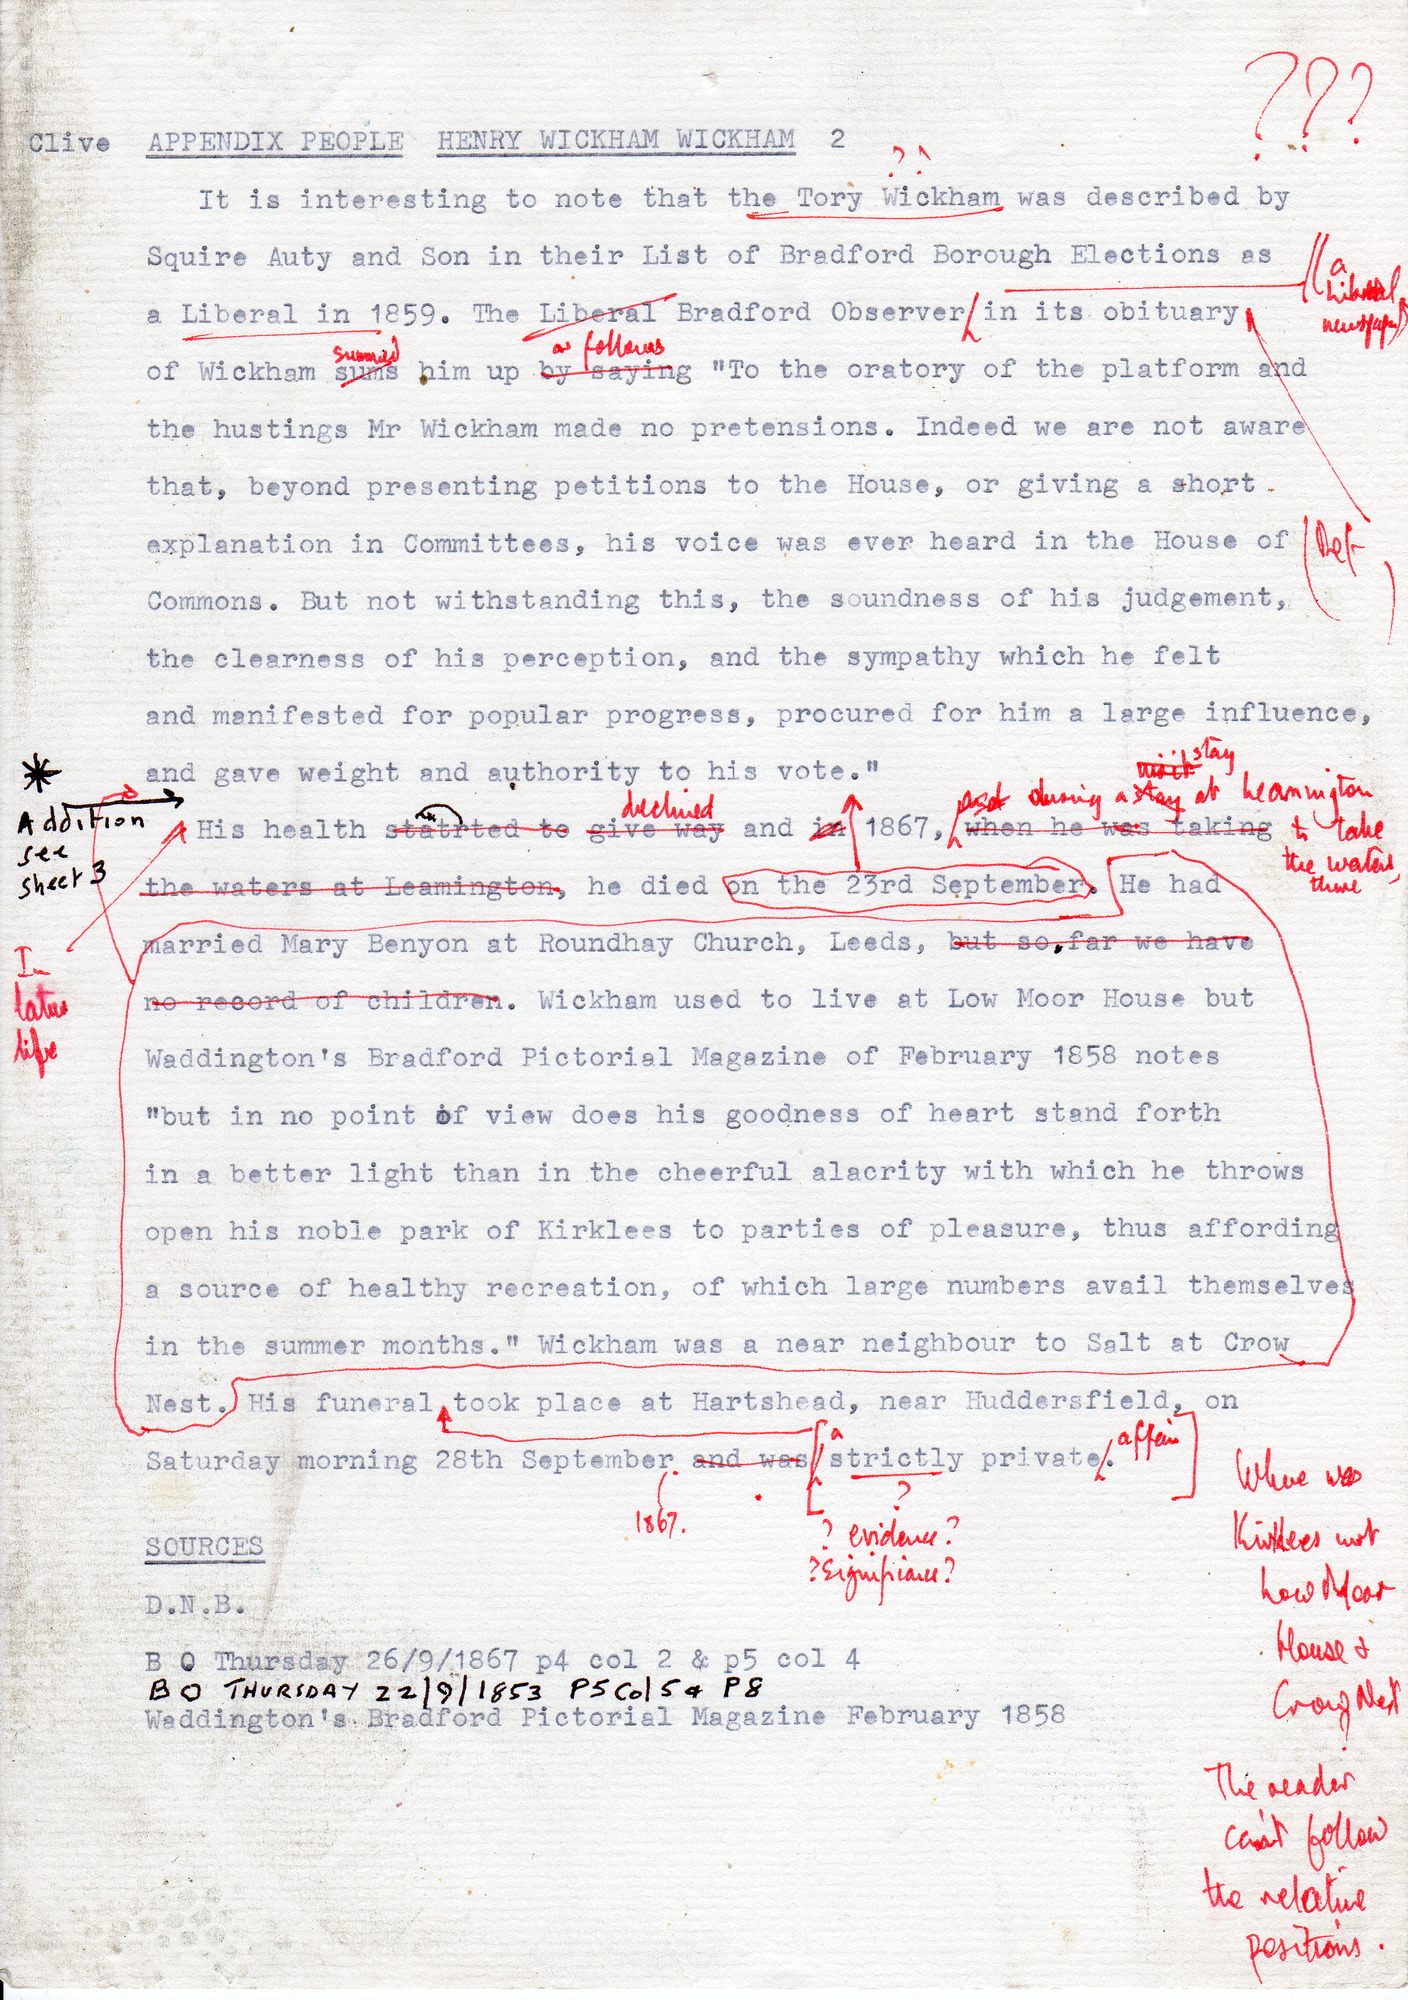 ???
Clive APPENDIX PEOPLE HENRY WICKHAM WICKHAM 2
??
It is interesting to note that the Tory Wickham was described by
Squire Auty and Son in their List of Bradford Borough Elections as
a Liberal newspaper
a Liberal in 1859. The Liberal Bradford Observer in its obituary
summed as follows
of Wickham sums him up by saying "To the oratory of the platform and
the hustings Mr Wickham made no pretensions. Indeed we are not aware
that, beyond presenting petitions to the House, or giving a short
explanation in Committees, his voice was ever heard in the House of
(Ref )
Commons. But not withstanding this, the soundness of his judgement,
the clearness of his perception, and the sympathy which he felt
and manifested for popular progress, procured for him a large influence,
and gave weight and authority to his vote."
* Addition see sheet 3
declined
visit stay
and during a stay at Leamington to take the waters there
His health statrted to give way and in 1867, when he was taking
the waters at Leamington, he died on the 23rd September. He had
In later life
married Mary Benyon at Roundhay Church, Leeds, but so far we have
no record of children. Wickham used to live at Low Moor House but
Waddington's Bradford Pictorial Magazine of February 1858 notes
"but in no point of view does his goodness of heart stand forth
in a better light than in the cheerful alacrity with which he throws
open his noble park of Kirklees to parties of pleasure, thus affording
a source of healthy recreation, of which large numbers avail themselves
in the summer months." Wickham was a near neighbour to Salt at Crow
Nest. His funeral took place at Hartshead, near Huddersfield, on
a affair
Saturday morning 28th September and was strictly private.
1867.
?
? evidence?
? Significance?
Where was
Kirklees not
Low Moor
House &
Crow Nest
The reader
can't follow
the relative
positions.
SOURCES
D.N.B.
B O Thursday 26/9/1867 p4 col 2 & p5 col 4
B O THURSDAY 22/9/1853 P5 Col 5 & P8
Waddington's Bradford Pictorial Magazine February 1858